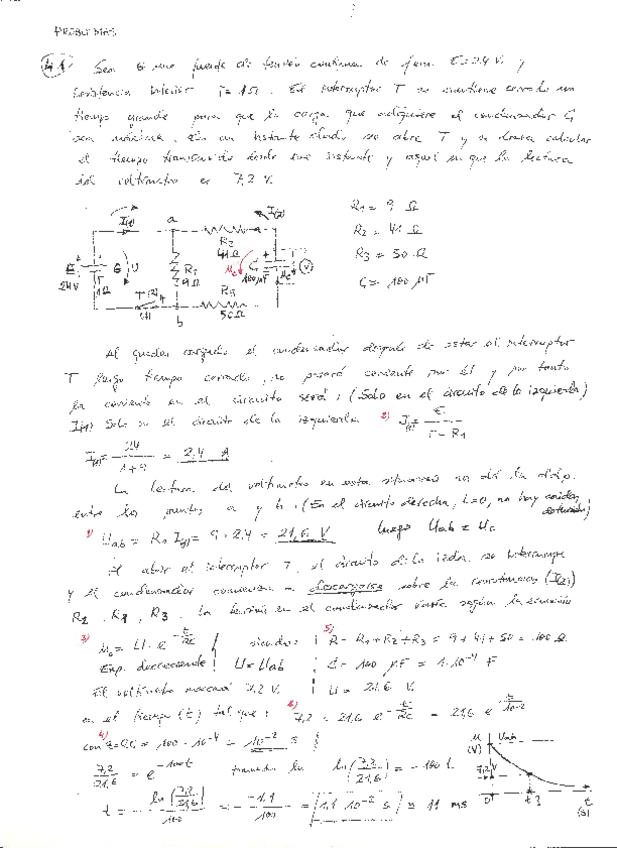 PROBLEMAS
4.1 Sea G una fuente de tensión continua de f.e.m. E=24 V. y
resistencia interior r= 1Ω. El interruptor T se mantiene cerrado un
tiempo grande para que la carga que adquiere el condensador C,
sea máxima. En un instante dado se abre T y se desea calcular
el tiempo transcurrido desde ese instante y aquel en que la lectura
del voltímetro es 7,2 V.
R1 = 9 Ω
R2 = 41 Ω
R3 = 50 Ω
C = 100 μF
I(1) a I(2)
R2
41Ω
E
24V
G U
1Ω
R1
9Ω
C
100μF
V
R3
50Ω
T (2)
(1)
b
Al quedar cargado el condensador después de estar el interruptor
T largo tiempo cerrado, no pasará corriente por él y por tanto
la corriente en el circuito será: (Solo en el circuito de la izquierda)
I(1) Solo en el circuito de la izquierda 2)
I(1) = 24 / 1+9 = 2,4 A
La lectura del voltímetro en esta situación es la d.d.p.
entre los puntos a y b. (En el circuito derecha, i=0, no hay caídas
1) Uab = R1 I(1) = 9 · 2,4 = 21,6 V luego Uab = Uc
Al abrir el interruptor T, el circuito de la izda. se interrumpe
y el condensador comienza a descargarse sobre la resistencia (I(2))
R2, R1, R3. La tensión en el condensador varía según la ecuación
3) 5)
U · e^-t/RC siendo: R = R1+R2+R3 = 9+41+50 = 100 Ω
Exp. decreciente U=Uab C = 100 μF = 1·10^-4 F
El voltímetro marcará 7,2 V. U = 21,6 V.
en el tiempo (t) tal que: 7,2 = 21,6 e^-t/RC = 21,6 e^-t/10^-2
= 100 · 10^-4 = 10^-2 s
7,2/21,6 = e^-100t tomando ln ln(7,2/21,6) = -100 t.
t = - ln(7,2/21,6)/100 = - -1,1/100 = 1,1 10^-2 s = 11 ms
(V) Uab
7,2V
0 t
(s)